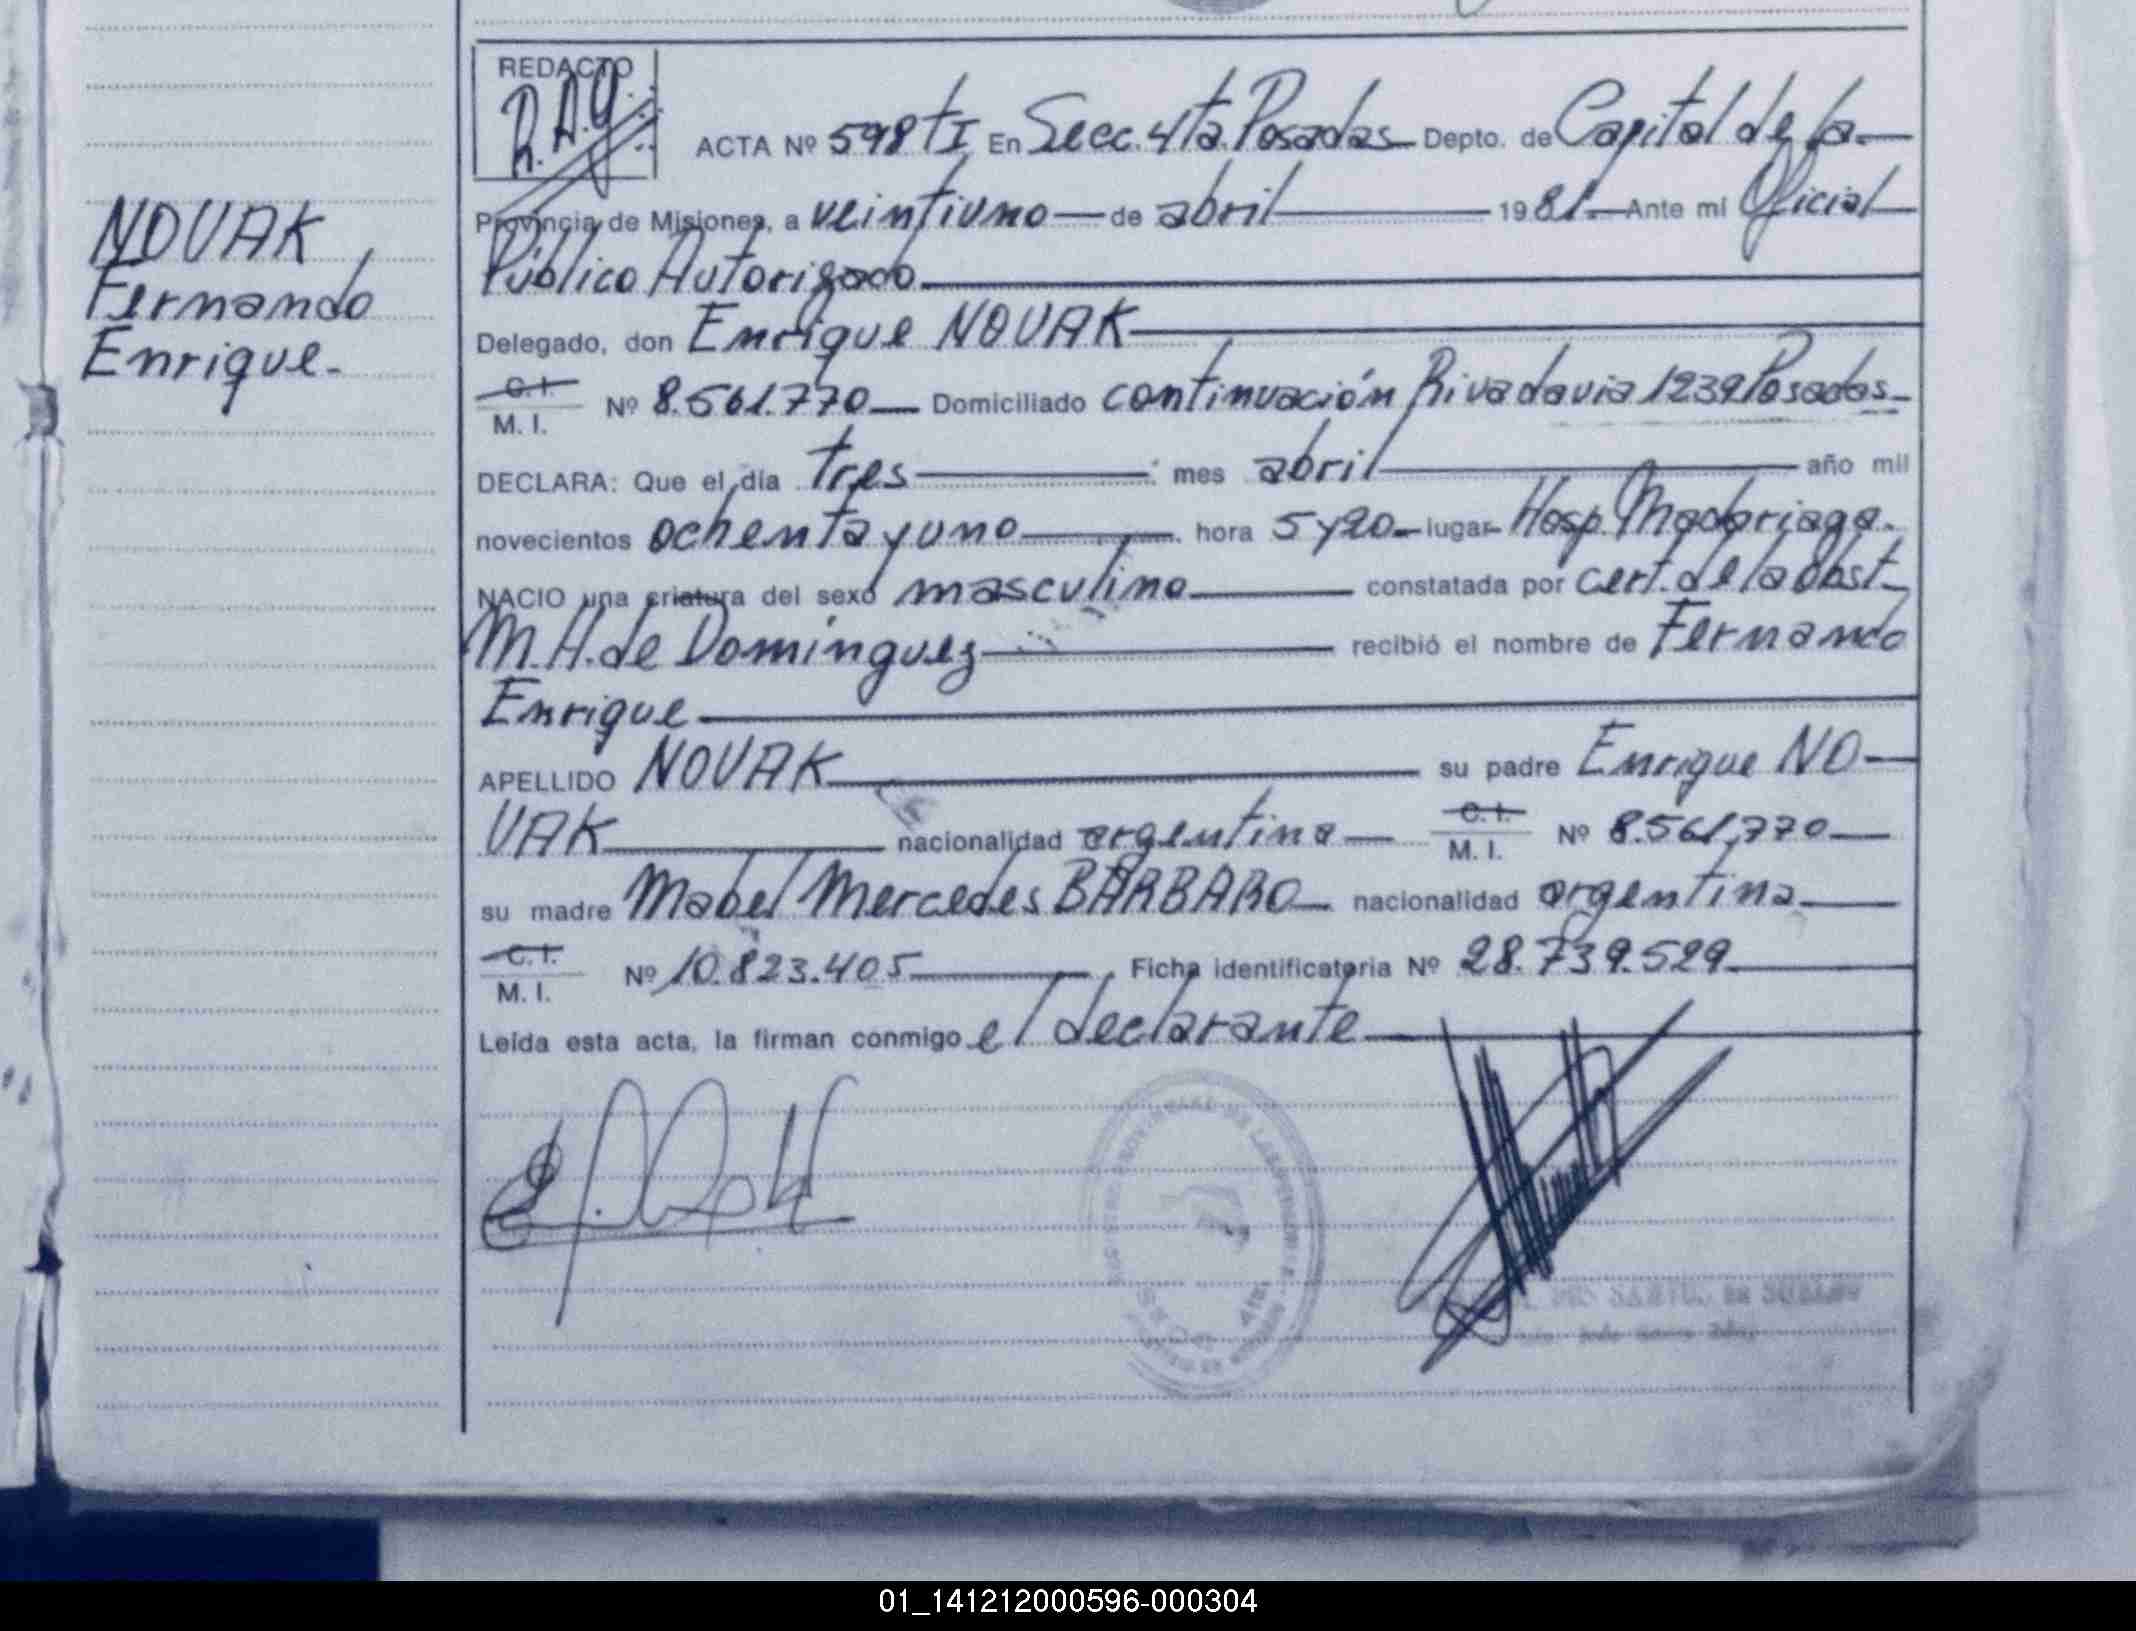 REDACTO
R.A.G.
ACTA Nº 598 tI En Secc. 4ta. Posadas Depto. de Capital de la
Provincia de Misiones, a veintiuno de abril 1981. Ante mi Oficial
Público Autorizado
NOVAK
Fernando
Enrique.
Delegado, don Enrique NOVAK
C. I.
M. I. Nº 8.561.770 Domiciliado continuación Rivadavia 1239 Posadas
DECLARA: Que el día tres mes abril año mil
novecientos ochenta y uno hora 5 y 20 lugar Hosp. Madariaga.
NACIO una criatura del sexo masculino constatada por cert. de la obst
M.H. de Dominguez recibió el nombre de Fernando
Enrique
APELLIDO NOVAK su padre Enrique NO
VAK nacionalidad argentina C. I. M. I. Nº 8.561.770
su madre Mabel Mercedes BÁRBARO nacionalidad argentina
C. I.
M. I. Nº 10.823.405 Ficha identificatoria Nº 28.739.529
Leída esta acta, la firman conmigo el declarante
01_141212000596-000304